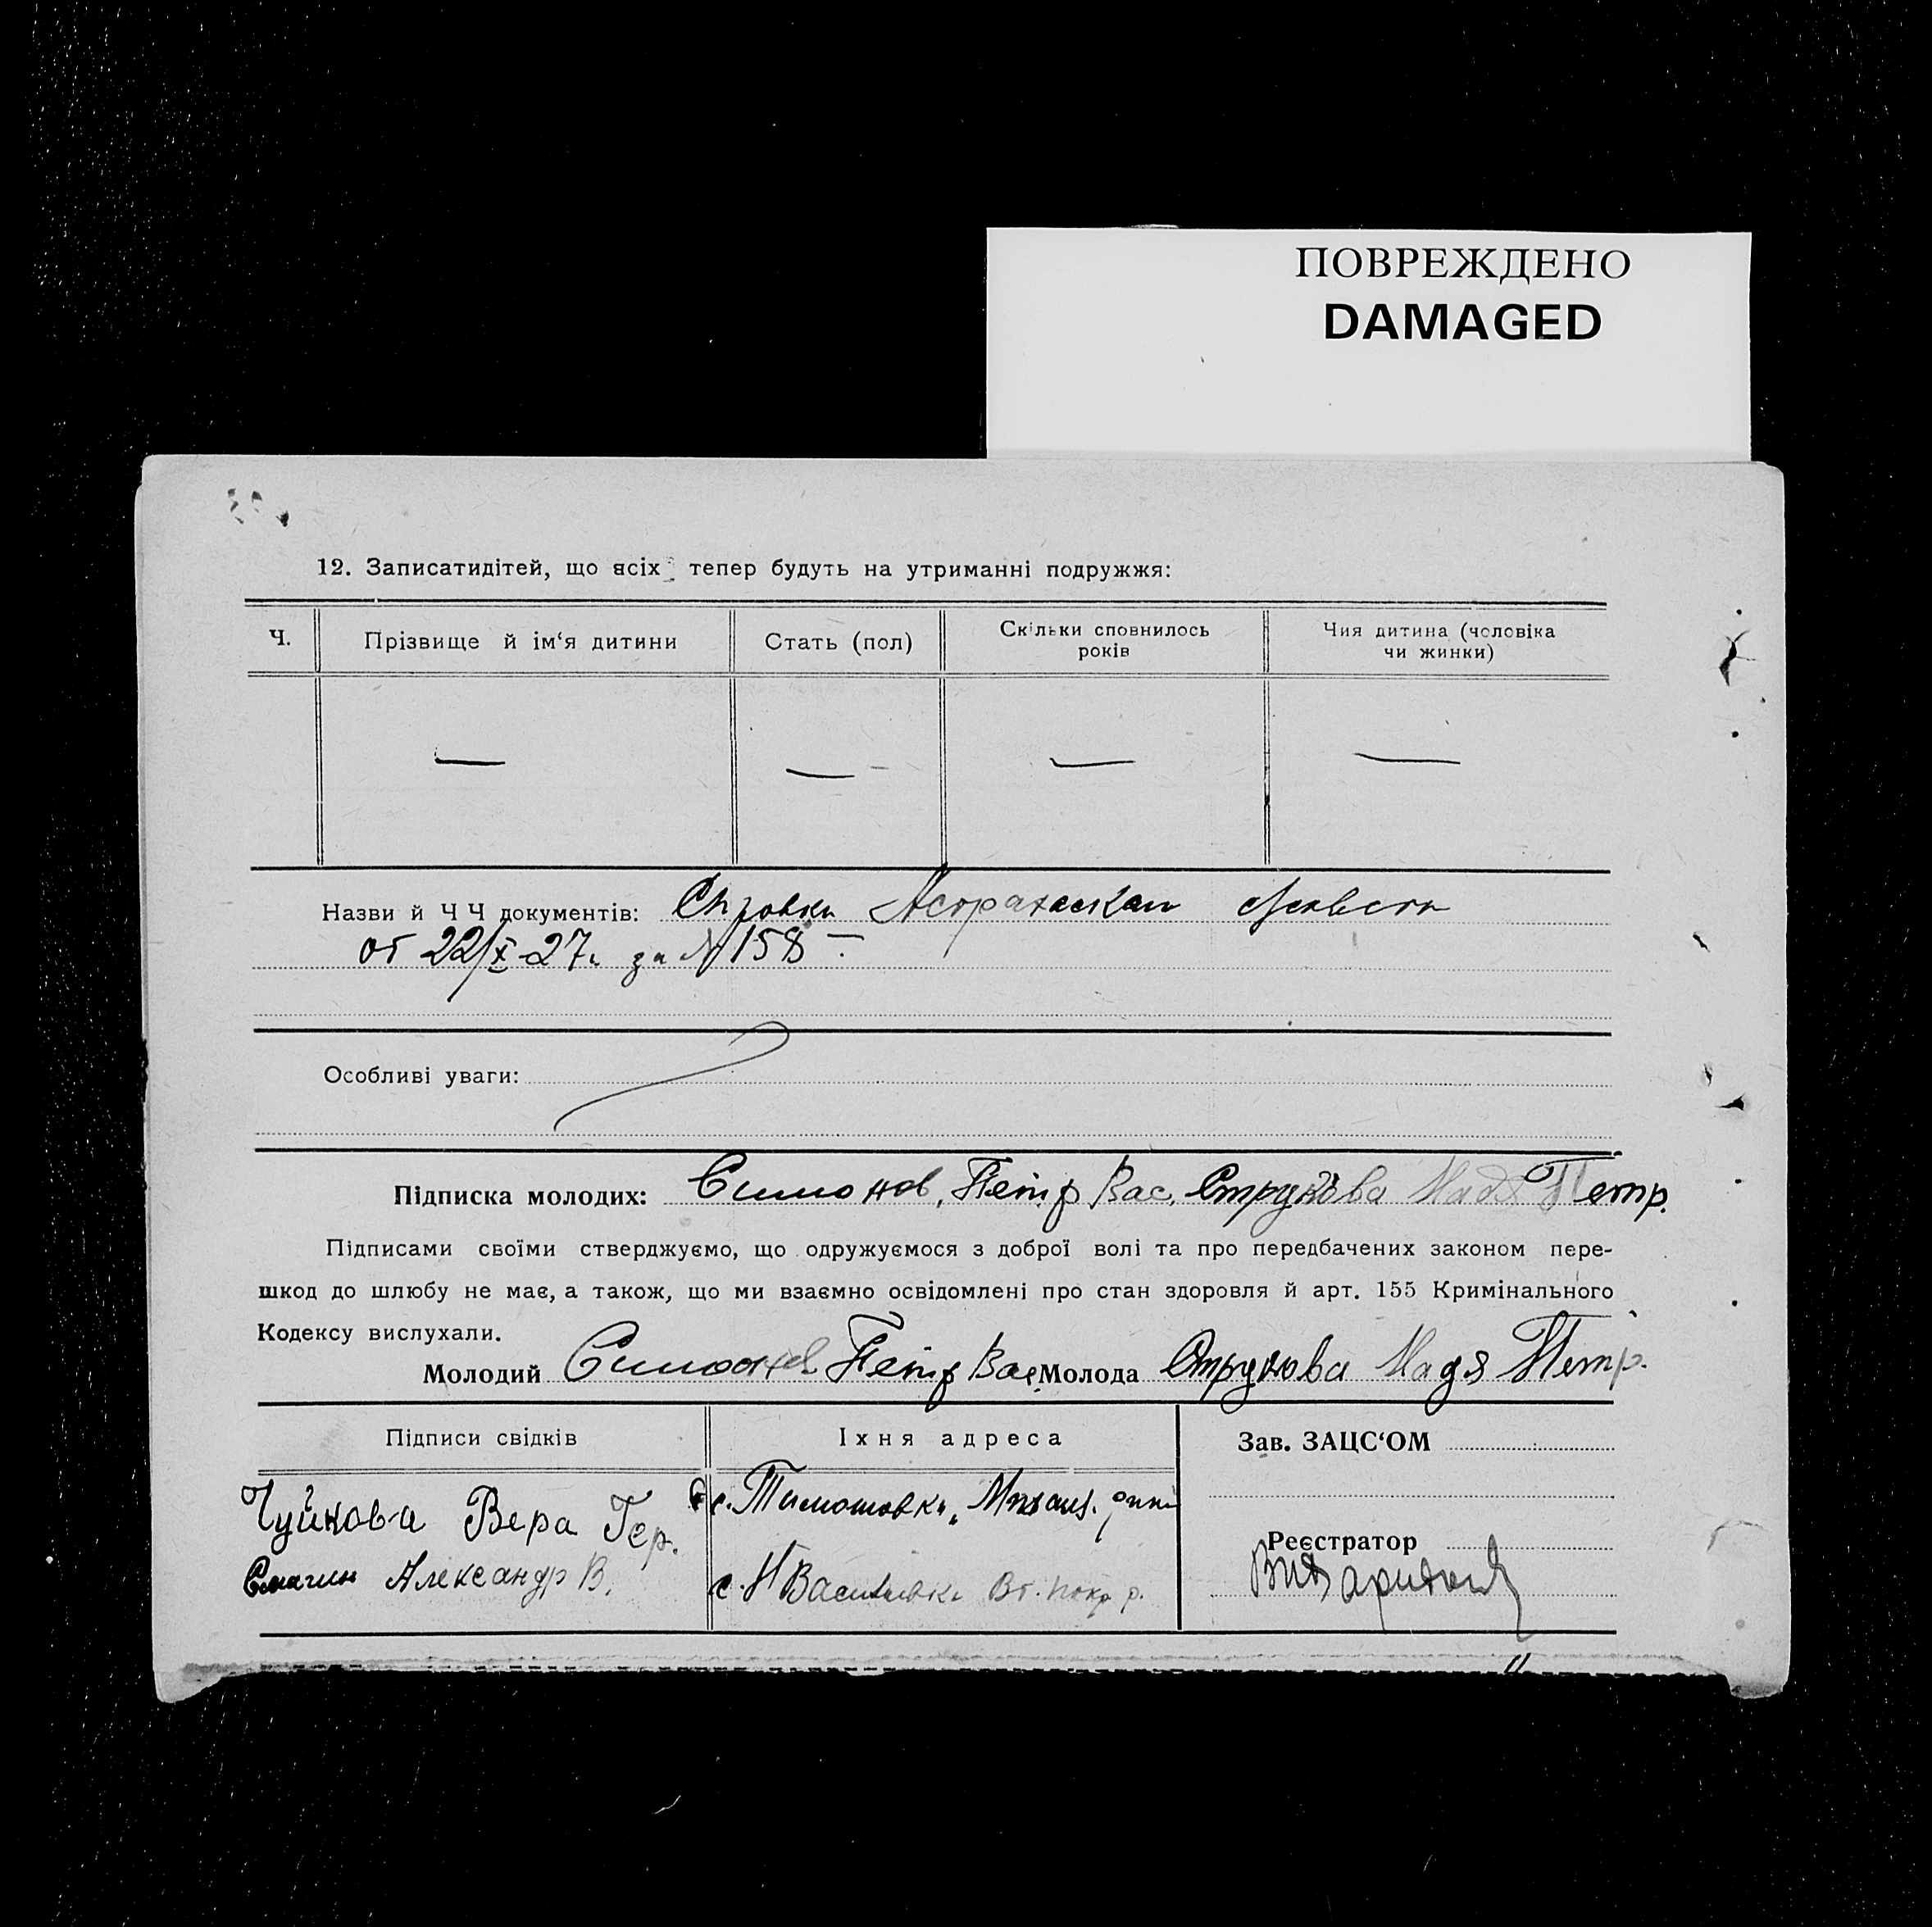 ПОВРЕЖДЕНО
DAMAGED
12. Записатидітей, що всіх тепер будуть на утриманні подружжя:
Ч.
Прізвище й ім‘я дитини
Стать (пол)
Скільки сповнилось
років
Чия дитина (чоловіка
чи жинки)
— — — —
Назви й Ч Ч документів: Справка
от 22/X-27г за № 158 —
Особливі уваги:
Підписка молодих: Симонов, Петр Вас. Струкова Надя Петр.
Підписами своїми стверджуємо, що одружуємося з доброї волі та про передбачених законом пере-
шкод до шлюбу не має, а також, що ми взаємно освідомлені про стан здоровля й арт. 155 Кримінального
Кодексу вислухали.
Молодий Симонов Петр Вас. Молода Струкова Надя Петр.
Підписи свідків
Їхня адреса
Зав. ЗАЦС‘ОМ
Чуйкова Вера Гер.
с. Тимошовка, Михайл.
Реєстратор
Смагин Александр В.
с. Н Васильевка